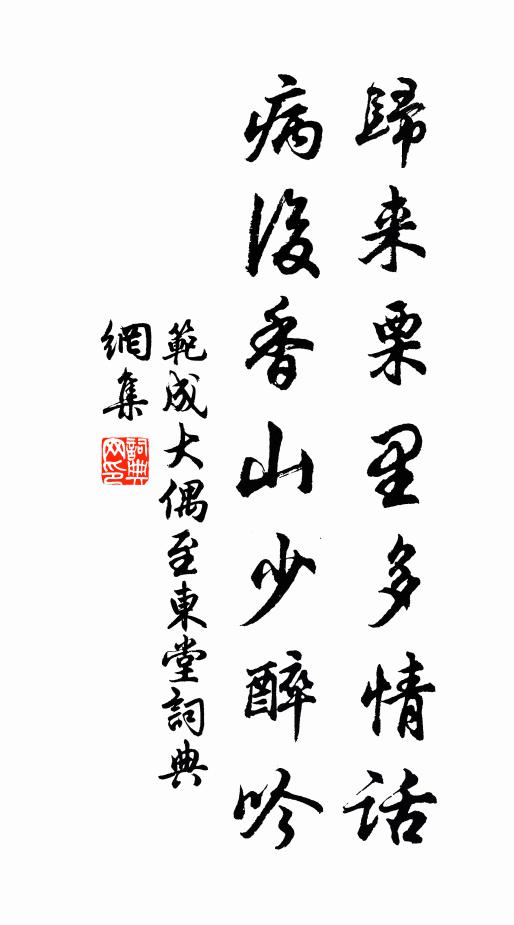 歸来栗里多情話
病後香山少醉吟
範成大偶至東堂詞典
網集
詞典網印